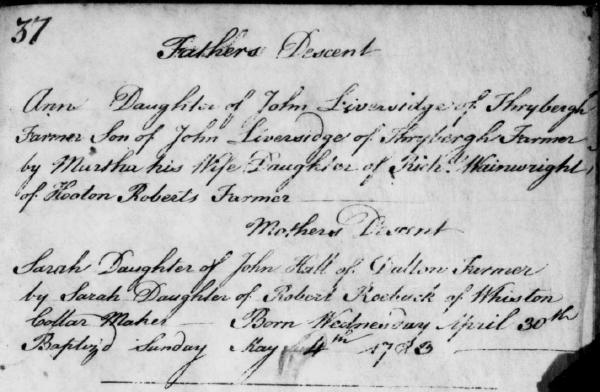 37
Fathers Descent
Ann Daughter of John Liversidge of Thrybergh
Farmer Son of John Liversidge of Thrybergh Farmer
by Martha his Wife Daughter of Rich.d Wainwright
of Hooton Roberts Farmer
Mothers Descent
Sarah Daughter of John Hall of Dalton Farmer
by Sarah Daughter of Robert Roebuck of Whiston
Collar Maker Born Wednesday April 30th
Baptiz'd Sunday May 4th 1783